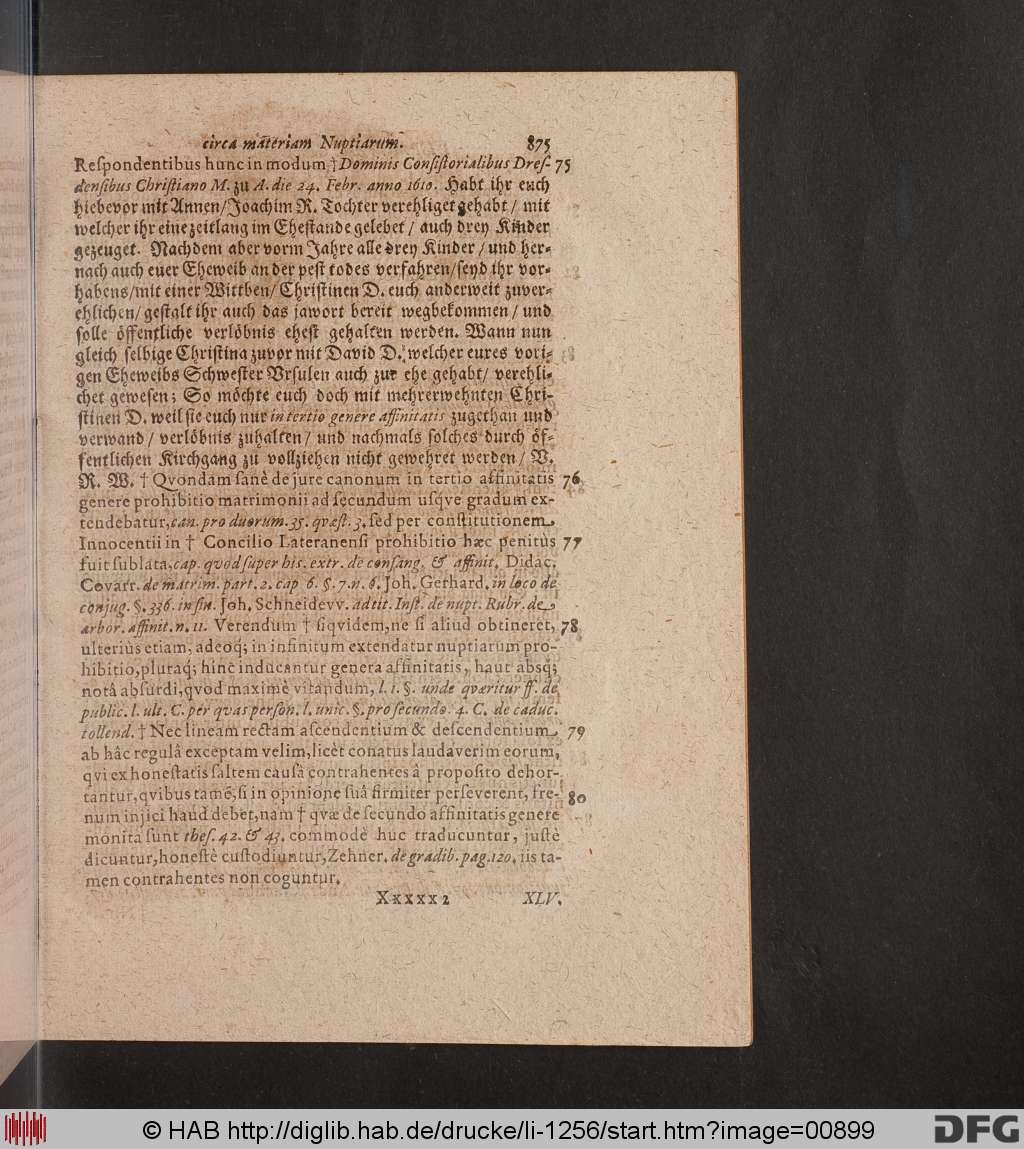 circa materiam Nuptiarum. 875
Respondentibus hunc in modum † Dominis Consistorialibus Dres- 75
densibus Christiano M. zu A. die 24. Febr. anno 1610. Habt ihr euch
hiebevor mit Annen/Joachim R. Tochter verehliget gehabt/ mit
welcher ihr eine zeitlang im Ehestande gelebet/ auch drey Kinder
gezeuget. Nachdem aber vorm Jahre alle drey Kinder/ und her-
nach auch euer Eheweib an der pest todes verfahren/seyd ihr vor-
habens/mit einer Wittben/ Christinen D. euch anderweit zuver-
ehlichen/ gestalt ihr auch das jawort bereit wegbekommen/ und
solle öffentliche verlöbnis ehest gehalten werden. Wann nun
gleich selbige Christina zuvor mit David D. welcher eures vori-
gen Eheweibs Schwester Ursulen auch zur ehe gehabt/ verehli-
chet gewesen; So möchte euch doch mit mehrerwehnten Chri-
stinen D. weil sie euch nur in tertio genere affinitatis zugethan und
verwand/ verlöbnis zuhalten/ und nachmals solches durch öf-
fentlichen Kirchgang zu vollziehen nicht gewehret werden/ V.
R. W. † Qvondam sanè de jure canonum in tertio affinitatis 76
genere prohibitio matrimonii ad secundum usqve gradum ex-
tendebatur, can. pro duorum. 35. qvæst. 3. sed per constitutionem
Innocentii in † Concilio Lateranensi prohibitio hæc penitus 77
fuit sublata, cap. qvod super his. extr. de consang. & affinit. Didac.
Covarr. de matrim. part. 2. cap. 6. §. 7. n. 6. Joh. Gerhard. in loco de
conjug. §. 336. in fin. Joh. Schneidevv. ad tit. Inst. de nupt. Rubr. de
arbor. affinit. n. 11. Verendum † siqvidem, ne si aliud obtineret, 78
ulteriùs etiam, adeoq; in infinitum extendatur nuptiarum pro-
hibitio, pluraq; hinc inducantur genera affinitatis, haut absq;
notâ absurdi, qvod maximè vitandum, l. 1. §. unde qværitur ff. de
public. l. ult. C. per qvas person. l. unic. §. pro secundo. 4. C. de caduc.
tollend. † Nec lineam rectam ascendentium & descendentium 79
ab hâc regulâ exceptam velim, licèt conatus laudaverim eorum,
qvi ex honestatis saltem causâ contrahentes â proposito dehor-
tantur, qvibus tamẽ, si in opinione suâ firmiter perseverent, fre- 80
num injici haud debet, nam † qvæ de secundo affinitatis genere
monita sunt thes. 42. & 43. commodè huc traducuntur, justè
dicuntur, honestè custodiuntur, Zehner. de gradib. pag. 120. iis ta-
men contrahentes non coguntur.
Xxxxx 2 XLV.
© HAB http://diglib.hab.de/drucke/li-1256/start.htm?image=00899
DFG